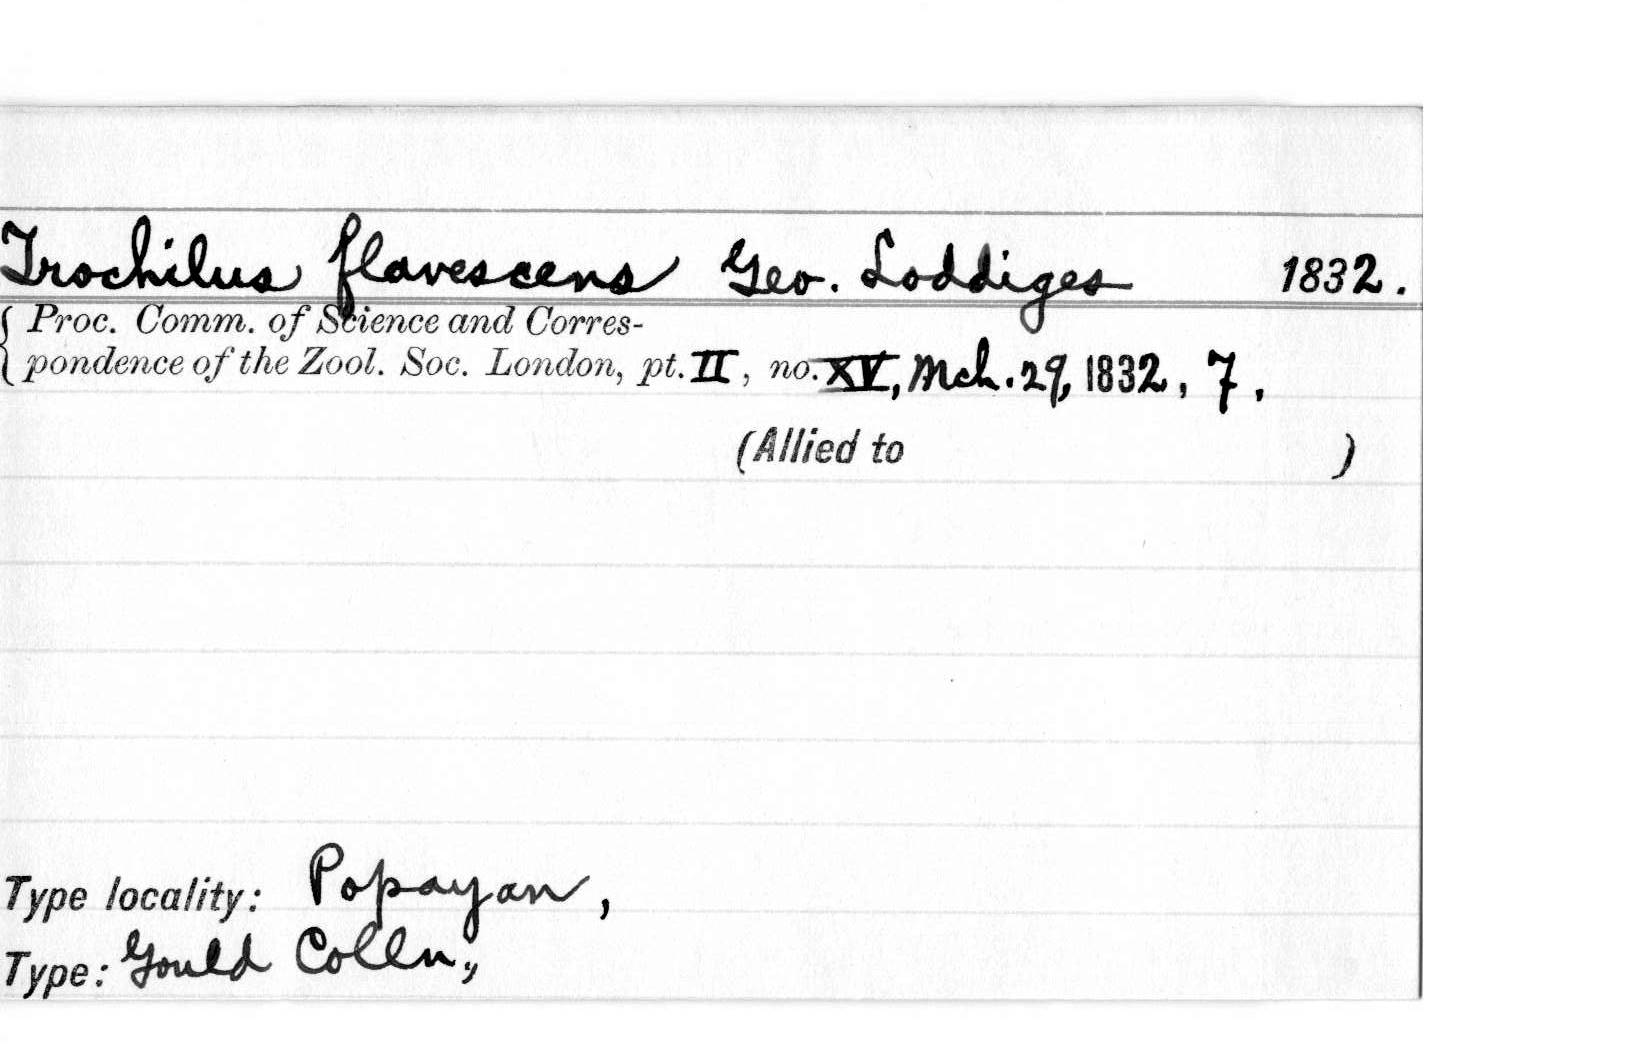 Trochilus flavescens Geo. Loddiges 1832.
Proc. Comm. of Science and Corres-
pondence of the Zool. Soc. London, pt. II, no. XV, Mch. 29, 1832, 7.
(Allied to )
Type locality: Popayan,
Type: Gould Colln.,